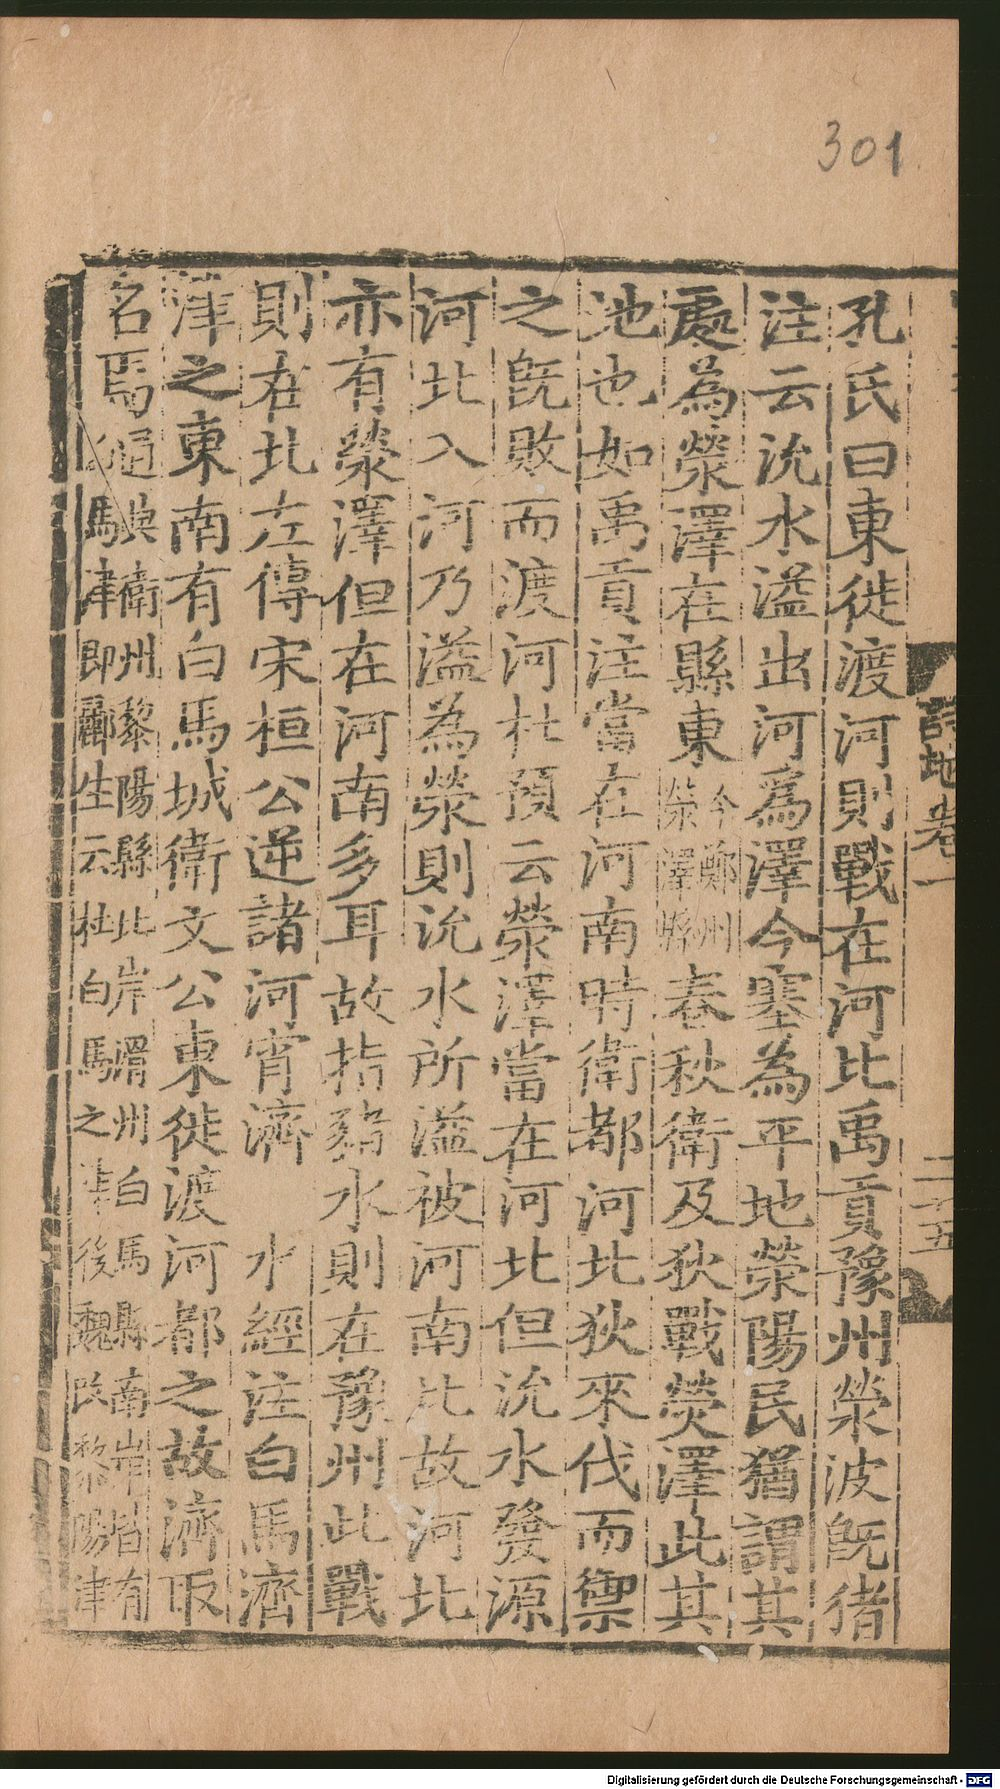 301
孔氏曰東徙渡河則戰在河北禹貢豫州滎波旣猪
注云沇水溢出河爲澤今塞為平地滎陽民猶謂其
處為滎澤在縣東今鄭州滎澤縣春秋衛及狄戰熒澤此其
池也如禹貢注當在河南時衛都河北狄來伐而禦
之旣敗而渡河杜預云滎澤當在河北但沇水發源
河北入河乃溢為滎則沇水所溢被河南北故河北
亦有滎澤但在河南多耳故指豬水則在豫州此戰
則在北左傳宋桓公逆諸河宵濟 水經注白馬濟
津之東南有白馬城衛文公東徙渡河都之故濟取
名焉通典衛州黎陽縣北岸滑州白馬縣南岸皆有
馬津即酈生云杜白馬之津後魏改黎陽津
詩地卷一
二十五
Digitalisierung gefördert durch die Deutsche Forschungsgemeinschaft - DFG